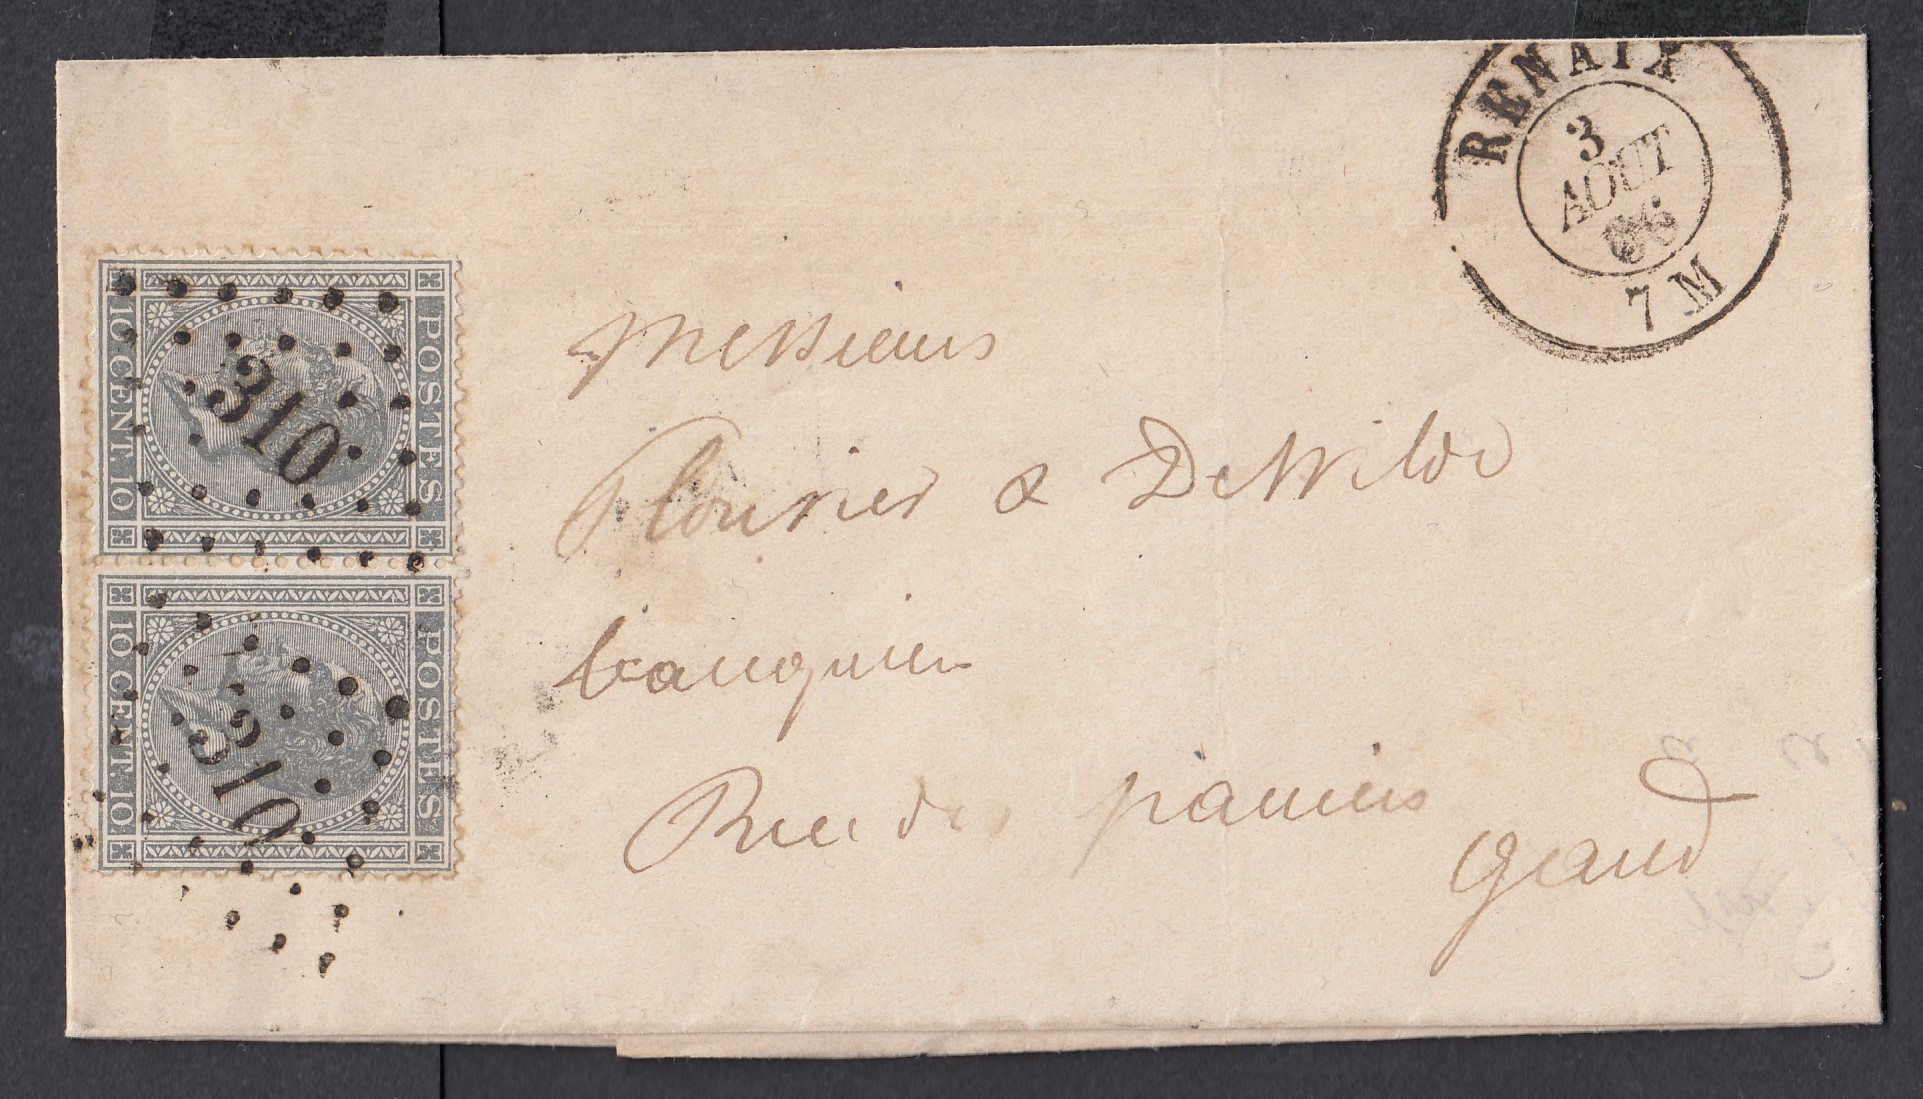 RENAIX
3
AOUT
66
7 M
POSTES
10 CENT. 10
310
POSTES
10 CENT. 10
310
Messieurs
& DeWilde
banquiers
Rue des paniers
Gand